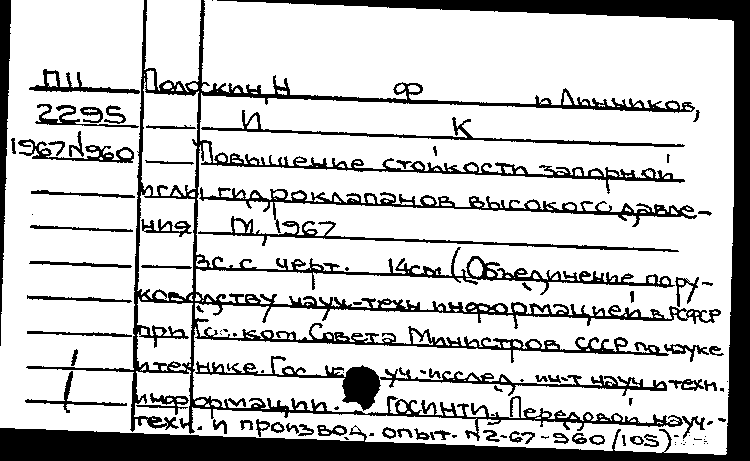 П11 Полоскин, Н Ф и Линников,
2295 И К
1967 N960 Повышение стойкости запорной
иглы гидроклапанов высокого давле-
ния М., 1967
3с. с черт. 14см (Объединение по ру-
ководству науч-техн информацией в РСФСР
при Гос. ком. Совета Министров СССР по науке
и технике. Гос науч.-исслед. ин-т науч и техн.
информации. ГОСИНТИ, Передовой науч.-
техн. и производ. опыт. N2-67-960/105)